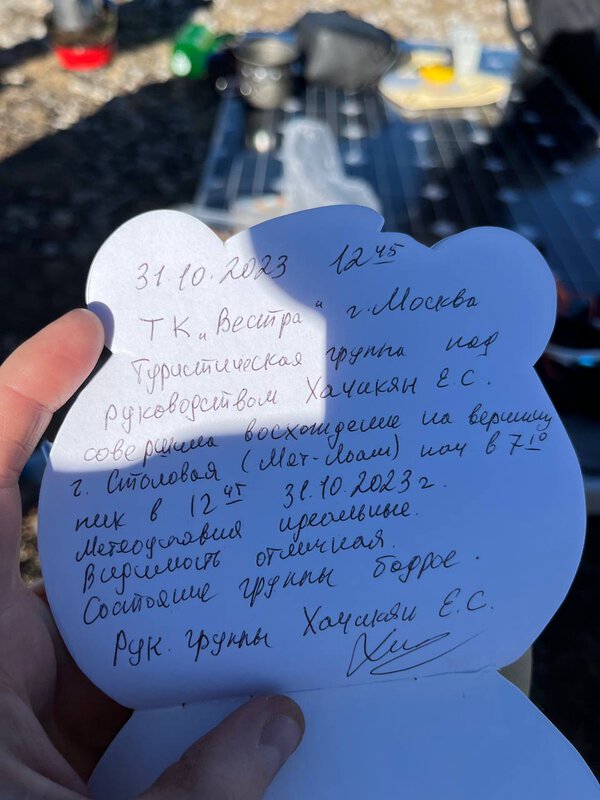 31.10.2023 12 45
ТК „Вестра“ г. Москва
Туристическая группа под
руководством Хачикян Е.С.
совершила восхождение на вершину
г. Столовая (Мат-Лоам) нач в 7 10
пик в 12 45 31.10.2023 г.
Метеоусловия идеальные.
Видимость отличная.
Состояние группы бодрое.
Рук. группы Хачикян Е.С.